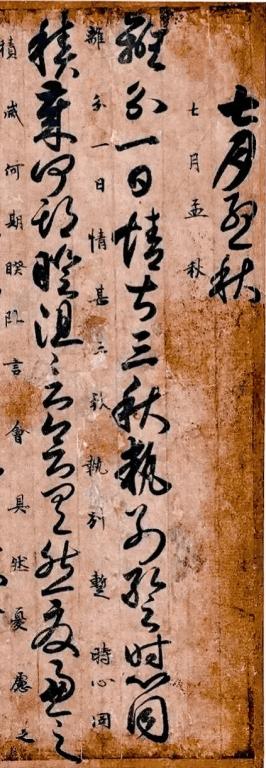 七月孟秋
七月孟秋
離分一日情甚三秋執別暫時心同
離分一日情甚三秋執別暫時心同
積歲何期睽阻言會具然憂慮之
積歲何期睽阻言會具然憂慮之